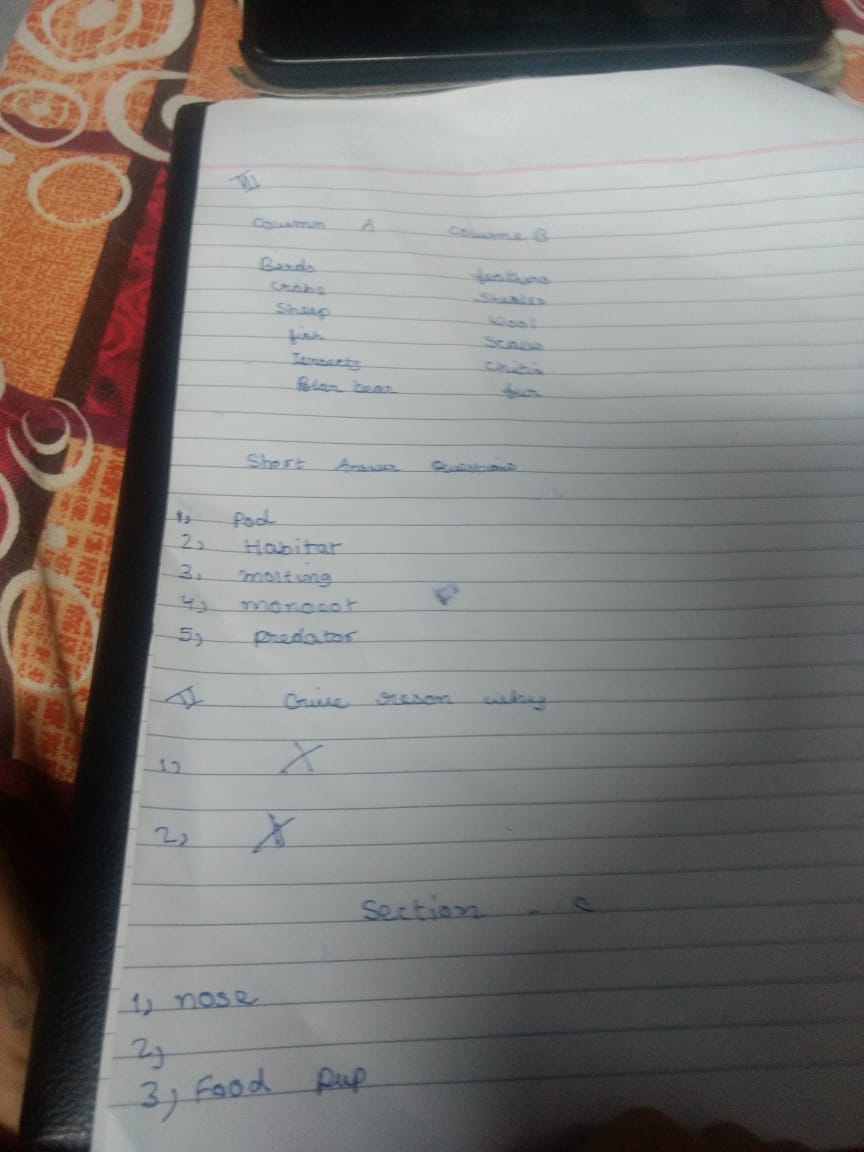 VII
Column A Column B
Birds feathers
Crabs Shells
Sheep Wool
fish Scales
Insects Chitin
Polar bear fur
Short Answer Questions
1, Pod
2, Habitat
3, molting
4, monocot
5, predator
II Give reson why
1,
2,
Section - C
1, nose
2,
3, Food pup